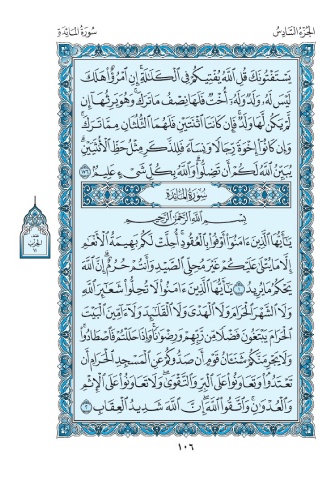 الجزء السادس
سورة المائدة
يَسْتَفْتُونَكَ قُلِ ٱللَّهُ يُفْتِيكُمْ فِى ٱلْكَلَـٰلَةِ إِنِ ٱمْرُؤٌا۟ هَلَكَ
لَيْسَ لَهُۥ وَلَدٌ وَلَهُۥٓ أُخْتٌ فَلَهَا نِصْفُ مَا تَرَكَ وَهُوَ يَرِثُهَآ إِن
لَّمْ يَكُن لَّهَا وَلَدٌ فَإِن كَانَتَا ٱثْنَتَيْنِ فَلَهُمَا ٱلثُّلُثَانِ مِمَّا تَرَكَ
وَإِن كَانُوٓا۟ إِخْوَةً رِّجَالًا وَنِسَآءً فَلِلذَّكَرِ مِثْلُ حَظِّ ٱلْأُنثَيَيْنِ
يُبَيِّنُ ٱللَّهُ لَكُمْ أَن تَضِلُّوا۟ وَٱللَّهُ بِكُلِّ شَىْءٍ عَلِيمٌۢ ١٧٦
سورة المائدة
بِسْمِ ٱللَّهِ ٱلرَّحْمَـٰنِ ٱلرَّحِيمِ
يَـٰٓأَيُّهَا ٱلَّذِينَ ءَامَنُوٓا۟ أَوْفُوا۟ بِٱلْعُقُودِ أُحِلَّتْ لَكُم بَهِيمَةُ ٱلْأَنْعَـٰمِ
إِلَّا مَا يُتْلَىٰ عَلَيْكُمْ غَيْرَ مُحِلِّى ٱلصَّيْدِ وَأَنتُمْ حُرُمٌ إِنَّ ٱللَّهَ
يَحْكُمُ مَا يُرِيدُ ١ يَـٰٓأَيُّهَا ٱلَّذِينَ ءَامَنُوا۟ لَا تُحِلُّوا۟ شَعَـٰٓئِرَ ٱللَّهِ
وَلَا ٱلشَّهْرَ ٱلْحَرَامَ وَلَا ٱلْهَدْىَ وَلَا ٱلْقَلَـٰٓئِدَ وَلَآ ءَآمِّينَ ٱلْبَيْتَ
ٱلْحَرَامَ يَبْتَغُونَ فَضْلًا مِّن رَّبِّهِمْ وَرِضْوَٰنًا وَإِذَا حَلَلْتُمْ فَٱصْطَادُوا۟
وَلَا يَجْرِمَنَّكُمْ شَنَـَٔانُ قَوْمٍ أَن صَدُّوكُمْ عَنِ ٱلْمَسْجِدِ ٱلْحَرَامِ أَن
تَعْتَدُوا۟ وَتَعَاوَنُوا۟ عَلَى ٱلْبِرِّ وَٱلتَّقْوَىٰ وَلَا تَعَاوَنُوا۟ عَلَى ٱلْإِثْمِ
وَٱلْعُدْوَٰنِ وَٱتَّقُوا۟ ٱللَّهَ إِنَّ ٱللَّهَ شَدِيدُ ٱلْعِقَابِ ٢
١٠٦